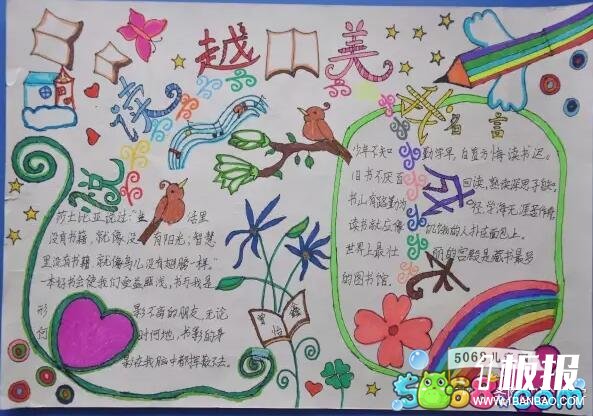 悦读越美
我成长
莎士比亚说过"生活里
没有书籍，就像没有阳光；智慧
里没有书籍，就像鸟儿没有翅膀一样。"
一本好书会使我们受益匪浅，书与我是
形影不离的朋友，无论
何时何地，书影的身
影在我脑中都挥散不去。
名言
少年不知勤学早，白首方悔读书迟。
旧书不厌百回读，熟读深思子自知。
书山有路勤为径，学海无涯苦作舟
读书就应像饥饿的人扑在面包上。
世界上最壮丽的宫殿是藏书最多
的图书馆。
曾怡鑫
5068儿
板报
WWW.1BANBAO.COM